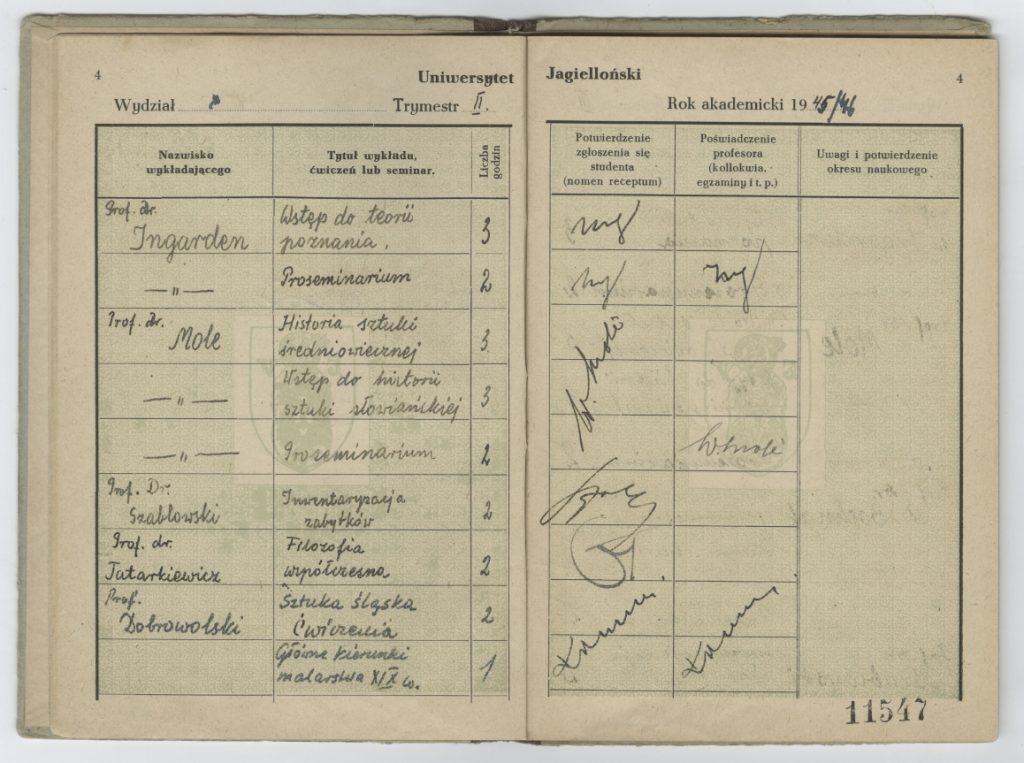 4
Uniwersytet Jagielloński
4
Wydział
Trymestr II.
Rok akademicki 1945/46
Nazwisko
wykładającego
Tytuł wykładu,
ćwiczeń lub seminar.
Liczba
godzin
Potwierdzenie
zgłoszenia się
studenta
(nomen receptum)
Poświadczenie
profesora
(kollokwia,
egzaminy i t. p.)
Uwagi i potwierdzenie
okresu naukowego
Prof. dr.
Ingarden
Wstęp do teorii
poznania.
3
—„—
Proseminarium
2
Prof. dr.
Mole
Historia sztuki
średniowiecznej
3
W. Mole
—„—
Wstęp do historii
sztuki słowiańskiej
3
—„—
Proseminarium
2
W Mole
Prof. Dr.
Szablowski
Inwentaryzacja
zabytków
2
Prof. dr.
Tatarkiewicz
Filozofia
współczesna
2
Prof.
Dobrowolski
Sztuka śląska
Ćwiczenia
2
Główne kierunki
malarstwa XIX w.
1
11547